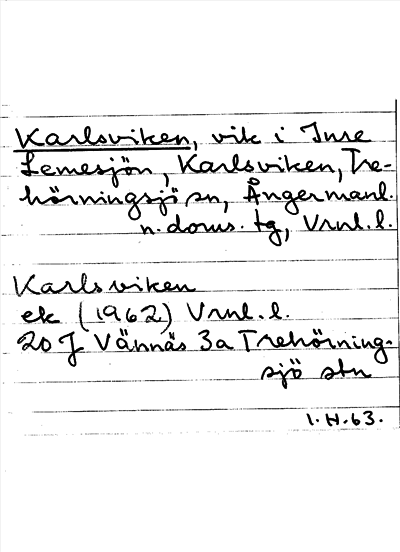 Karlsviken, vik i Inre
Lemesjön, Karlsviken, Tre-
hörningsjö sn, Ångermanl.
n. doms. tg, Vrnl. l.
Karlsviken
ek (1962) Vrnl. l.
20 J Vännäs 3a Trehörning-
sjö stn
1.H.63.